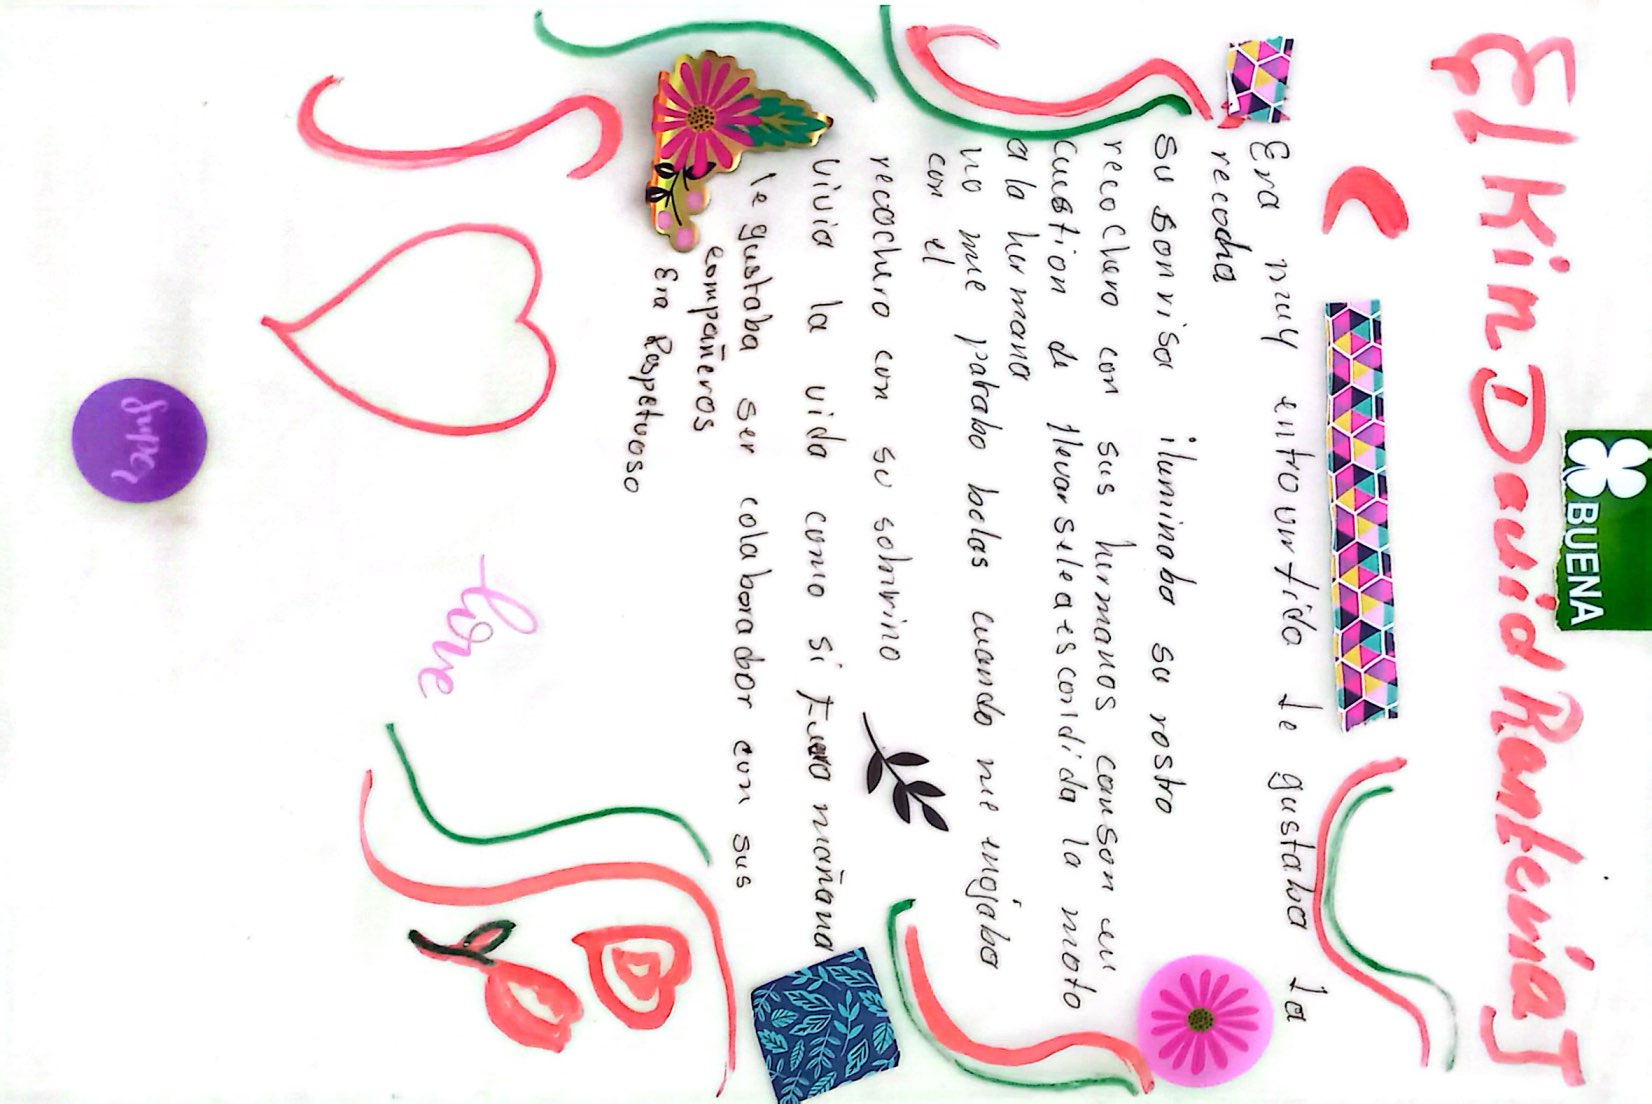 BUENA
Elkin David Rentería J
Era muy entrovertido le gustaba la
recocha
su sonrisa iluminaba su rostro
recochero con sus hermanos canson en
cuestion de llevarselea escondida la moto
a la hermana
no me paraba bolas cuando me enojaba
con el
recochero con su sobrino
vivia la vida como si fuera mañana
le gustaba ser colaborador con sus
compañeros
Era Respetuoso
love